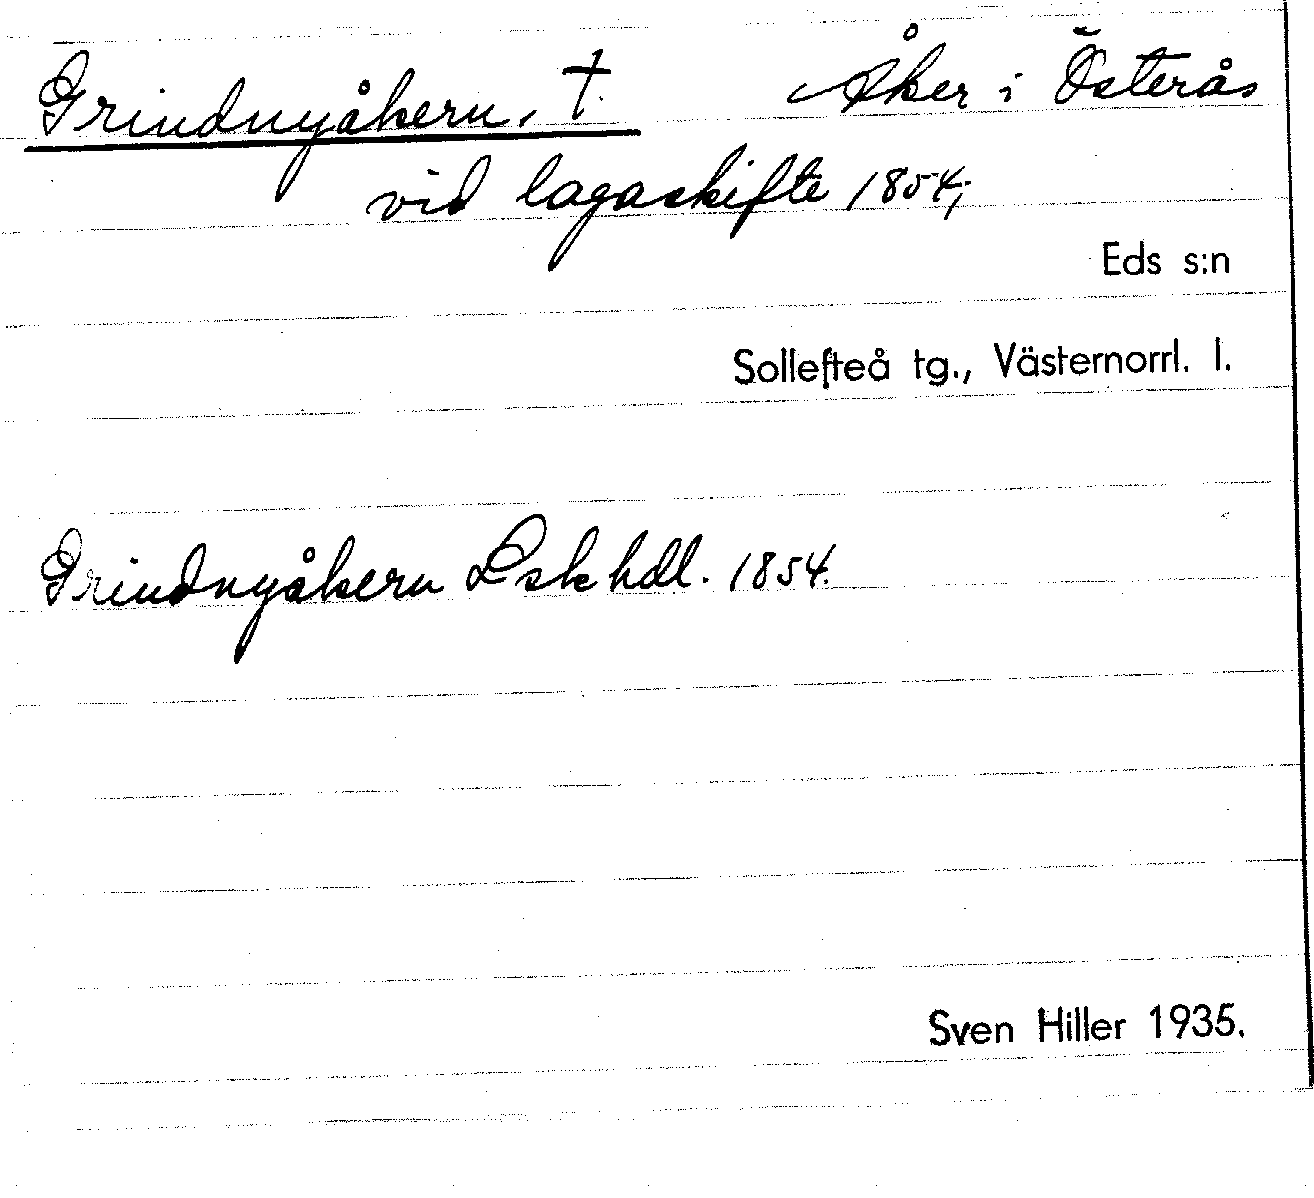 Grindnyåkern, † Åker i Österås
vid lagaskifte 1854;
Eds s:n
Sollefteå tg., Västernorrl. l.
Grindnyåkern Lsk hdl. 1854.
Sven Hiller 1935.